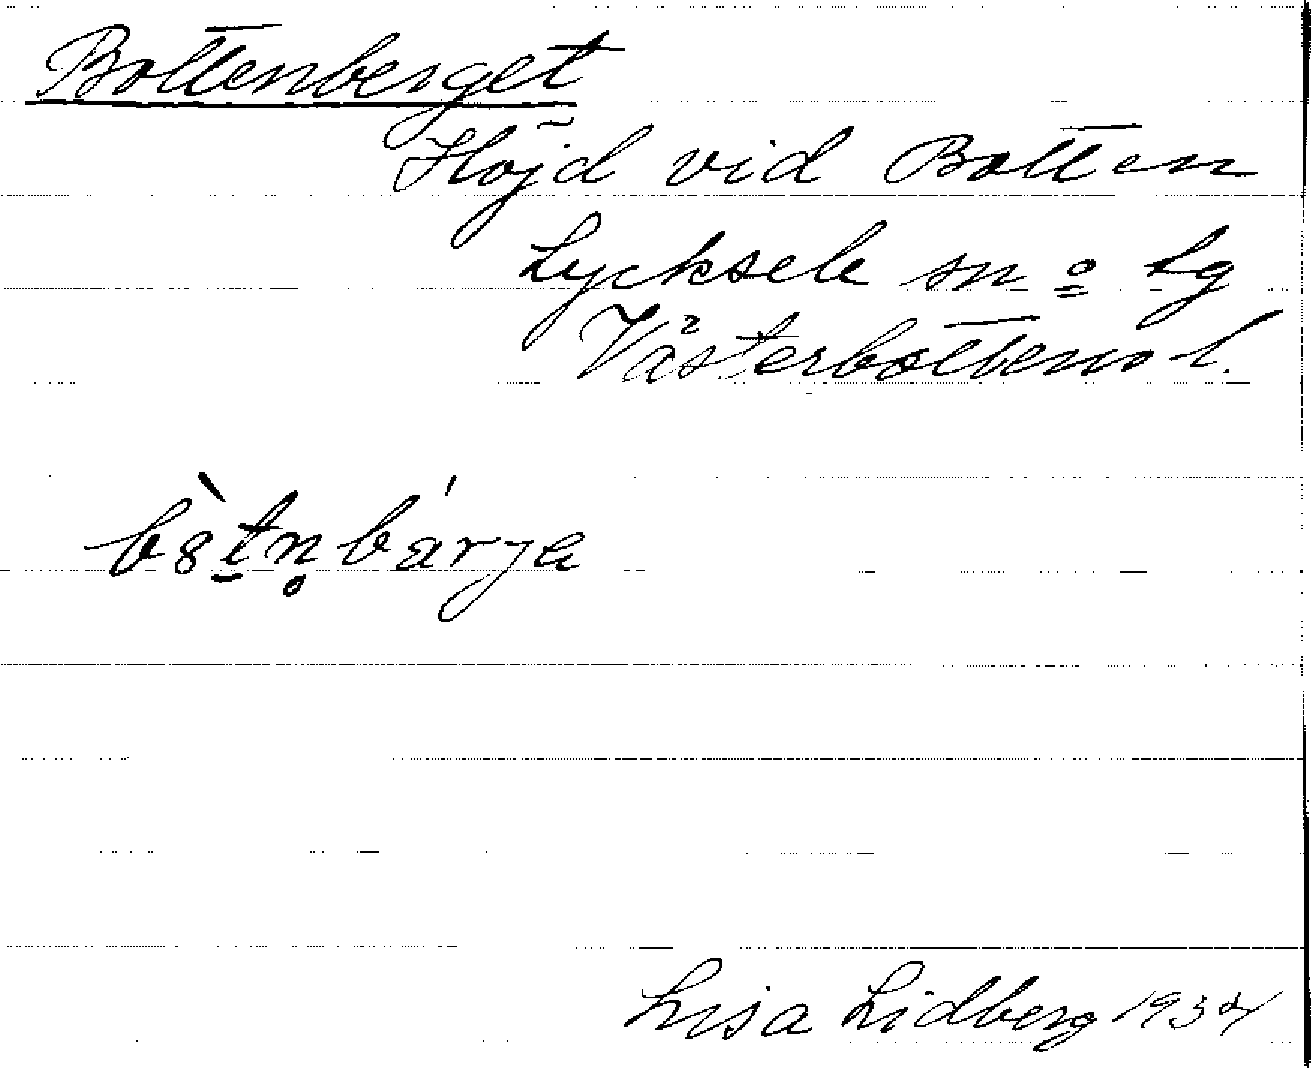 Bottenberget
Höjd vid Botten
Lycksele sn o Lg
Västerbottens l.
b8̀tn̥bárja
Lisa Lidberg 1934